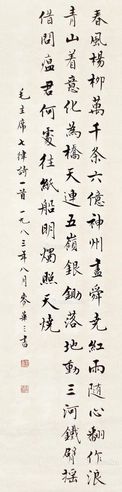 春風楊柳萬千条六億神州盡舜堯紅雨隨心翻作浪
青山着意化為橋天連五嶺銀鋤落地動三河鐵臂搖
借問瘟君何處往紙船明燭照天燒
毛主席七律詩一首一九八三年八月麥華三書